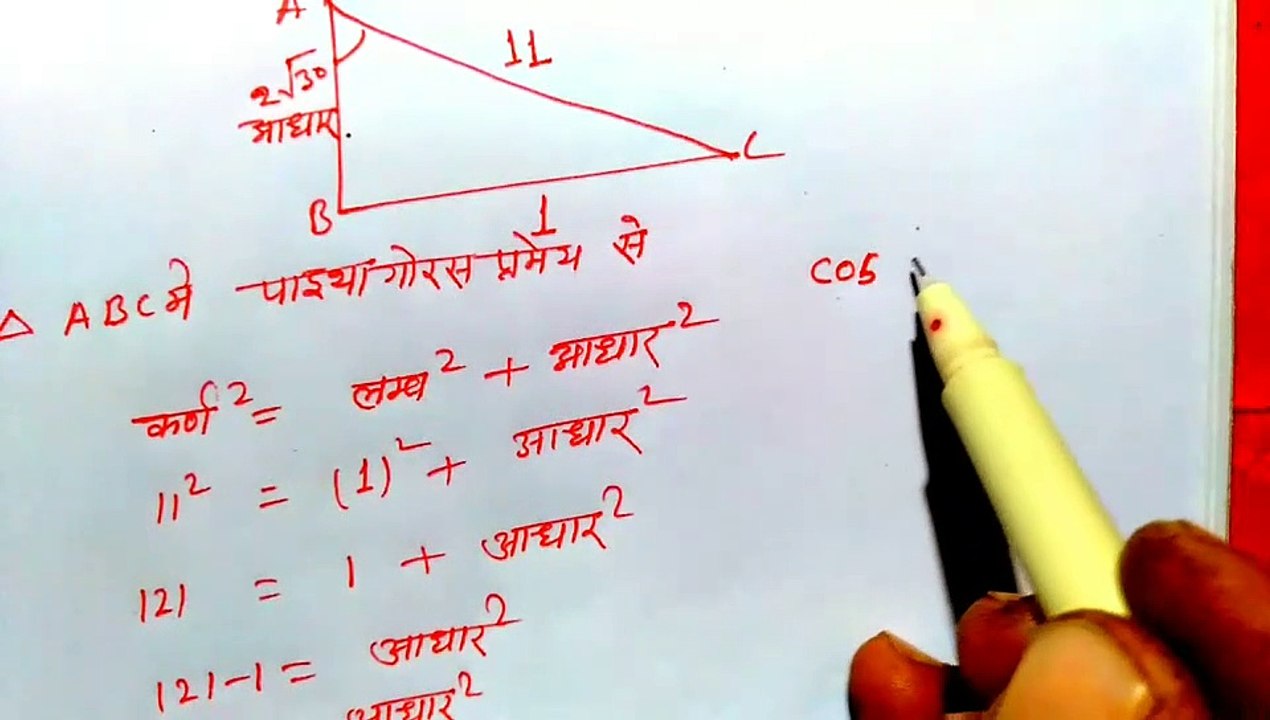 A
11
2√30
आधार
C
B
1
△ ABC में पाइथागोरस प्रमेय से
cos
कर्ण² = लम्ब² + आधार²
11² = (1)² + आधार²
121 = 1 + आधार²
121-1 = आधार²
आधार²